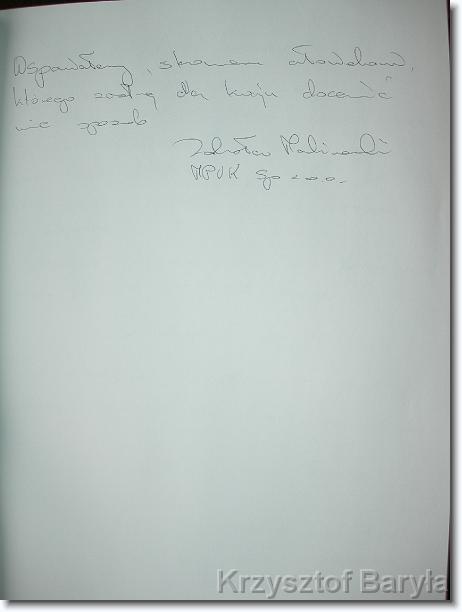 Wspaniałemu, skromnemu człowiekowi,
którego zasług dla kraju docenić
nie sposób
Zdzisław Malinowski
MPUK Sp z o.o.
Krzysztof Baryła